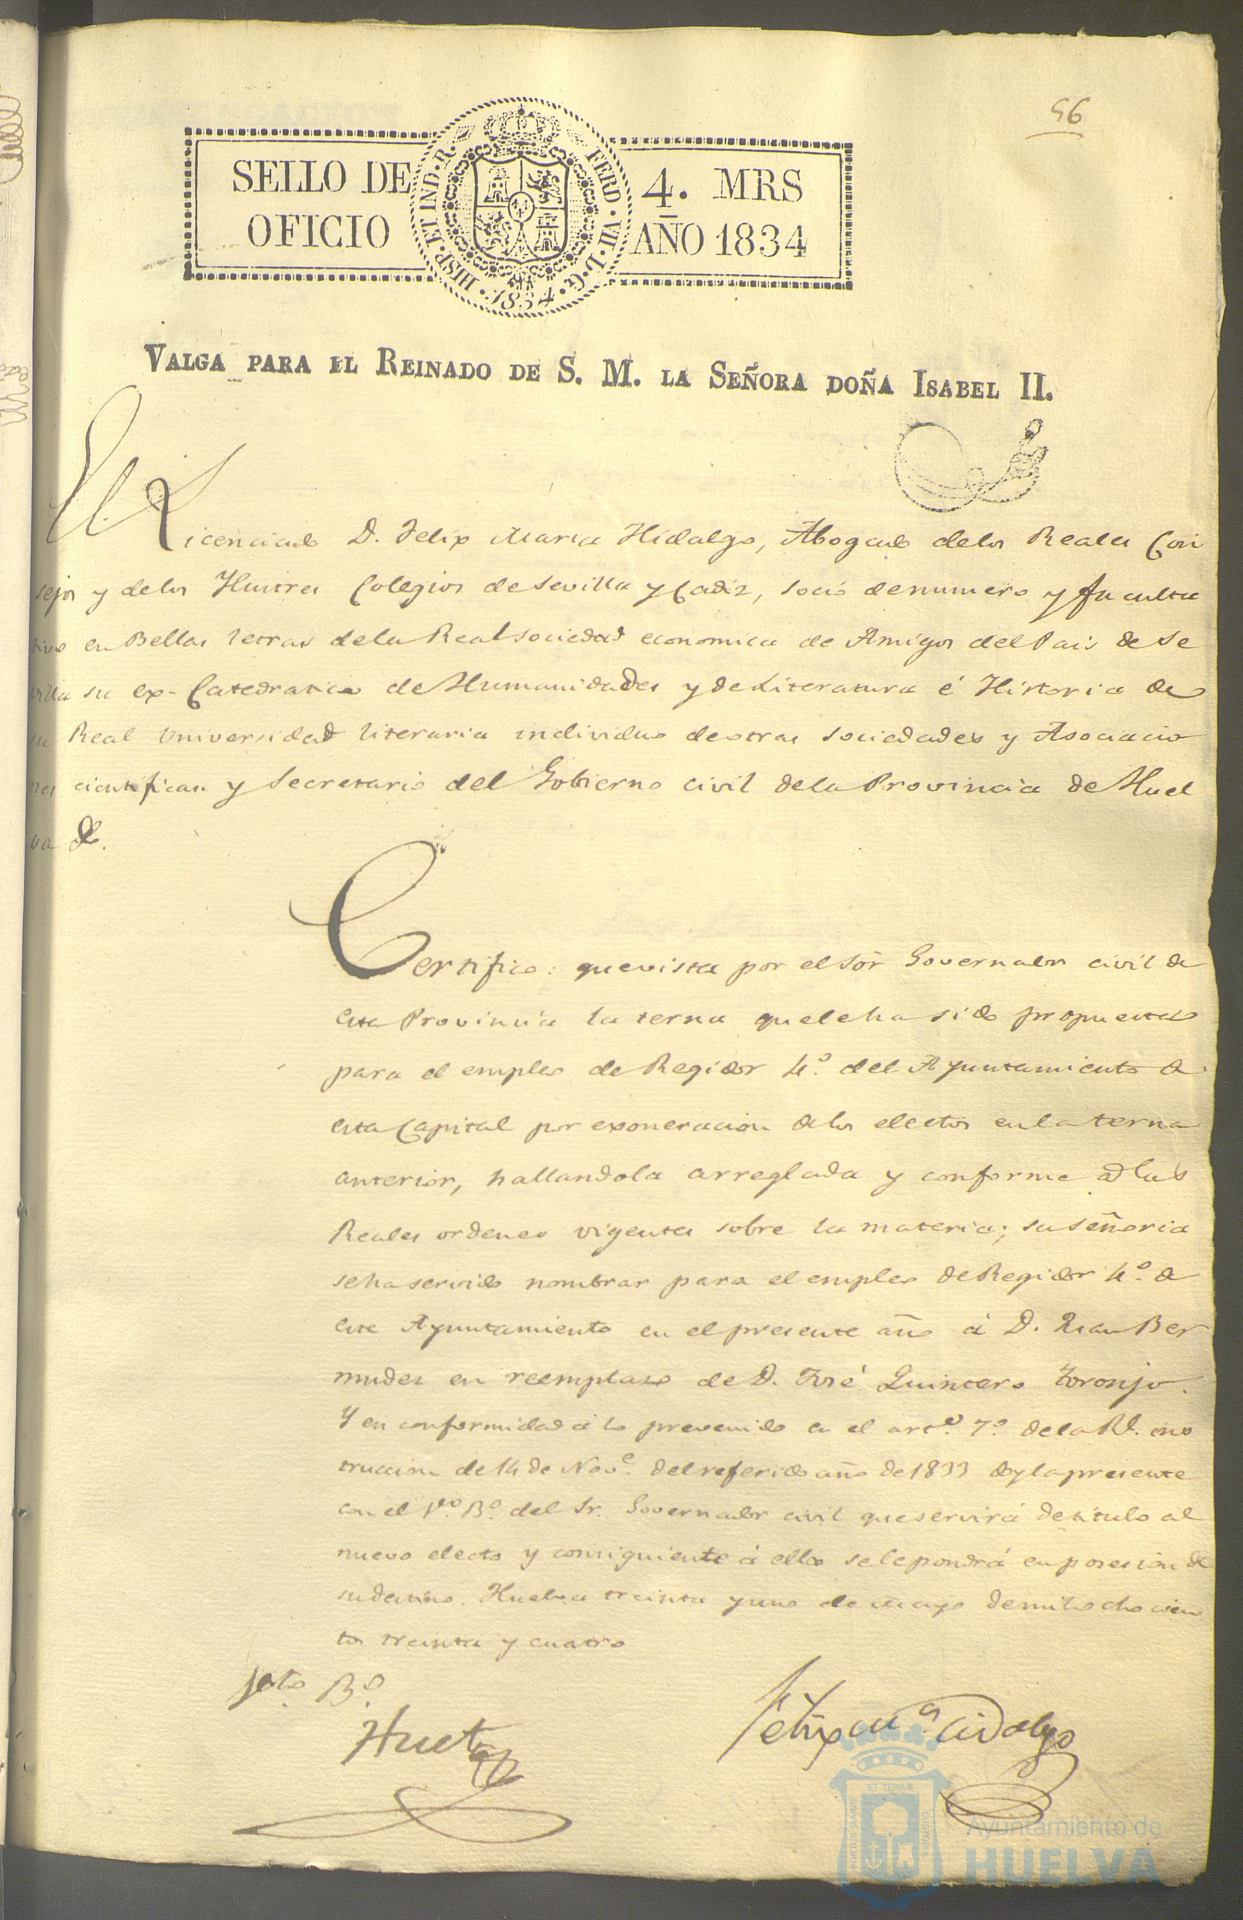 96
SELLO DE
OFICIO
HISP. ET IND. R. FERD. VII. D. G. 1834
4. MRS
AÑO 1834
VALGA PARA EL REINADO DE S. M. LA SEÑORA DOÑA ISABEL II.
El Licenciado D. Felix Maria Hidalgo, Abogado delos Reales Con
sejos y delos Ilustres Colegios de Sevilla y Cadiz, socio denumero y faculta
tivo en Bellas letras dela Real sociedad economica de Amigos del Pais de Se
villa su ex-Catedratico de Humanidades y de Literatura é Historia de
su Real Universidad literaria individuo deotras sociedades y Asociacio
nes cientificas y Secretario del Gobierno civil dela Provincia de Huel
va &.
Certifico: que vista por el Sor Governador civil de
esta Provincia la terna quele ha sido propuesta
para el empleo de Regidor 4.º del Ayuntamiento de
esta Capital por exoneracion delos electos en la terna
anterior, hallandola arreglada y conforme a las
Reales ordenes vigentes sobre la materia; su señoria
seha servido nombrar para el empleo de Regidor 4.º de
este Ayuntamiento en el presente año á D. Juan Ber
mudez en reemplazo de D. José Quintero Toronjo.
Y en conformidad á lo prevenido en el artº. 7º dela Rl. ins
truccion de 14 de Nove. del referido año de 1833 doy la presente
con el Vº. Bº. del Sr. Governador civil que servirá de titulo al
nuevo electo y consiguiente á ello se le pondrá en posesion de
su destino. Huelva treinta y uno de mayo de mil ochocien
tos treinta y cuatro
Vto. Bº.
Huet
Felix Mª Hidalgo
Ayuntamiento de
HUELVA